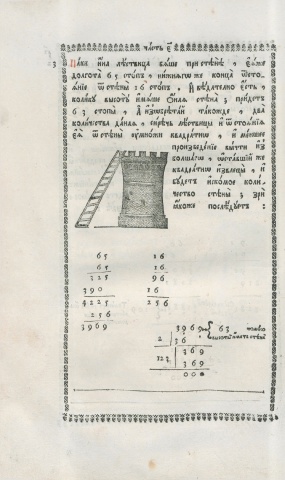 часть є҃
3 Паки ина лѣствица бѧше при стѣнѣ , єѧже
долгота 65 стопъ , нижнѧгѡ же конца ѿстоѧ
ѧнїе ѿ стѣны 16 стопъ . И вѣдателно єсть ,
колику высоту имѧше
стѣна ; придетъ
63 стопы , И изѡбрѣтай такожде , два
количества данаѧ , сирѣчь лѣствицы и ѿстоѧнїѧ
єѧ ѿ стѣны оумножи квадратнѡ , и меншее
произведенїе вычти из
болшагѡ , ѡставшїй же
квадратнѡ извлецы , и
будетъ искомое коли
чество стѣны ; зри
ꙗкоже послѣдуетъ :
65 16
65 16
325 96
390 16
4225 256
256
3969
3969 63 толика
высота стѣны
2 36
369
123 369
000